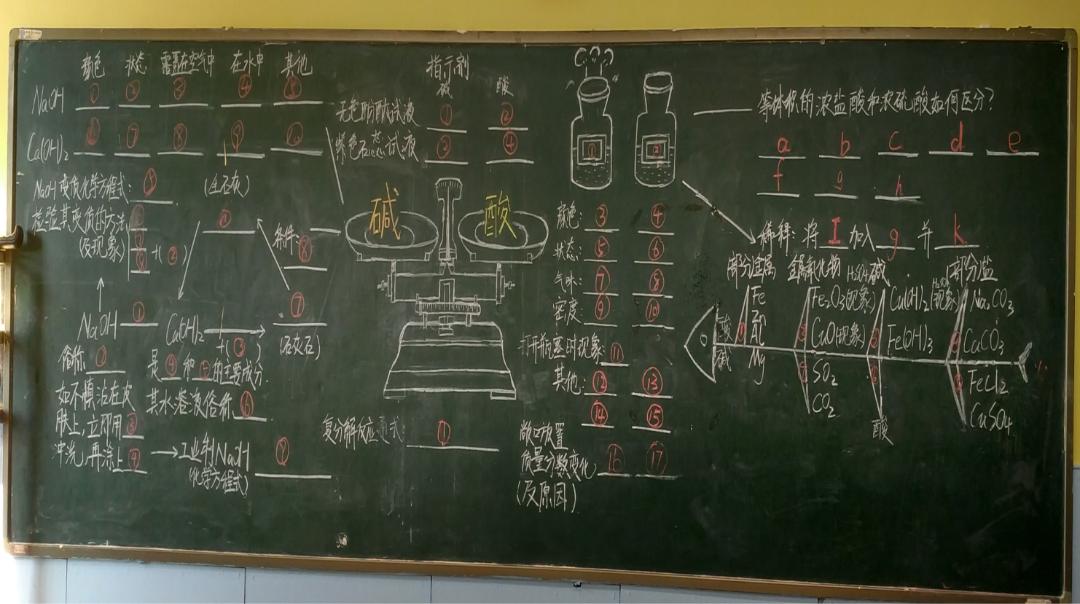 颜色 状态 露置在空气中 在水中 其他
NaOH ① ② ③ ④ ⑤
Ca(OH)₂ ⑥ ⑦ ⑧ ⑨ ⑩
NaOH变质化学方程式:
(生石灰)
检验其变质的方法
(及现象)
+(②)
条件:
NaOH ①
Ca(OH)₂
+(③)
⑦
(石灰石)
俗称 ②
是④和⑤的主要成分.
其水溶液俗称 ⑥
如不慎沾在皮
肤上,立即用③
冲洗,再涂上④
工业制NaOH
(化学方程式)
指示剂
碱 酸
无色酚酞试液 ① ②
紫色石蕊试液 ③ ④
碱 酸
复分解反应通式: ①
① ②
颜色: ③ ④
状态: ⑤ ⑥
气味: ⑦ ⑧
密度: ⑨ ⑩
打开瓶塞时现象: ⑪
其他: ⑫ ⑬
⑭ ⑮
敞口放置
质量分数变化 ⑯ ⑰
(及原因)
等体积的浓盐酸和浓硫酸如何区分?
a b c d e
f g h
稀释: 将 I 加入 g 并 k
部分金属 金属氧化物 碱 部分盐
Fe
Zn
Al
Mg
Fe₂O₃(现象)
CuO(现象)
SO₂
CO₂
Cu(OH)₂
Fe(OH)₃
酸
Na₂CO₃
CaCO₃
FeCl₂
CuSO₄